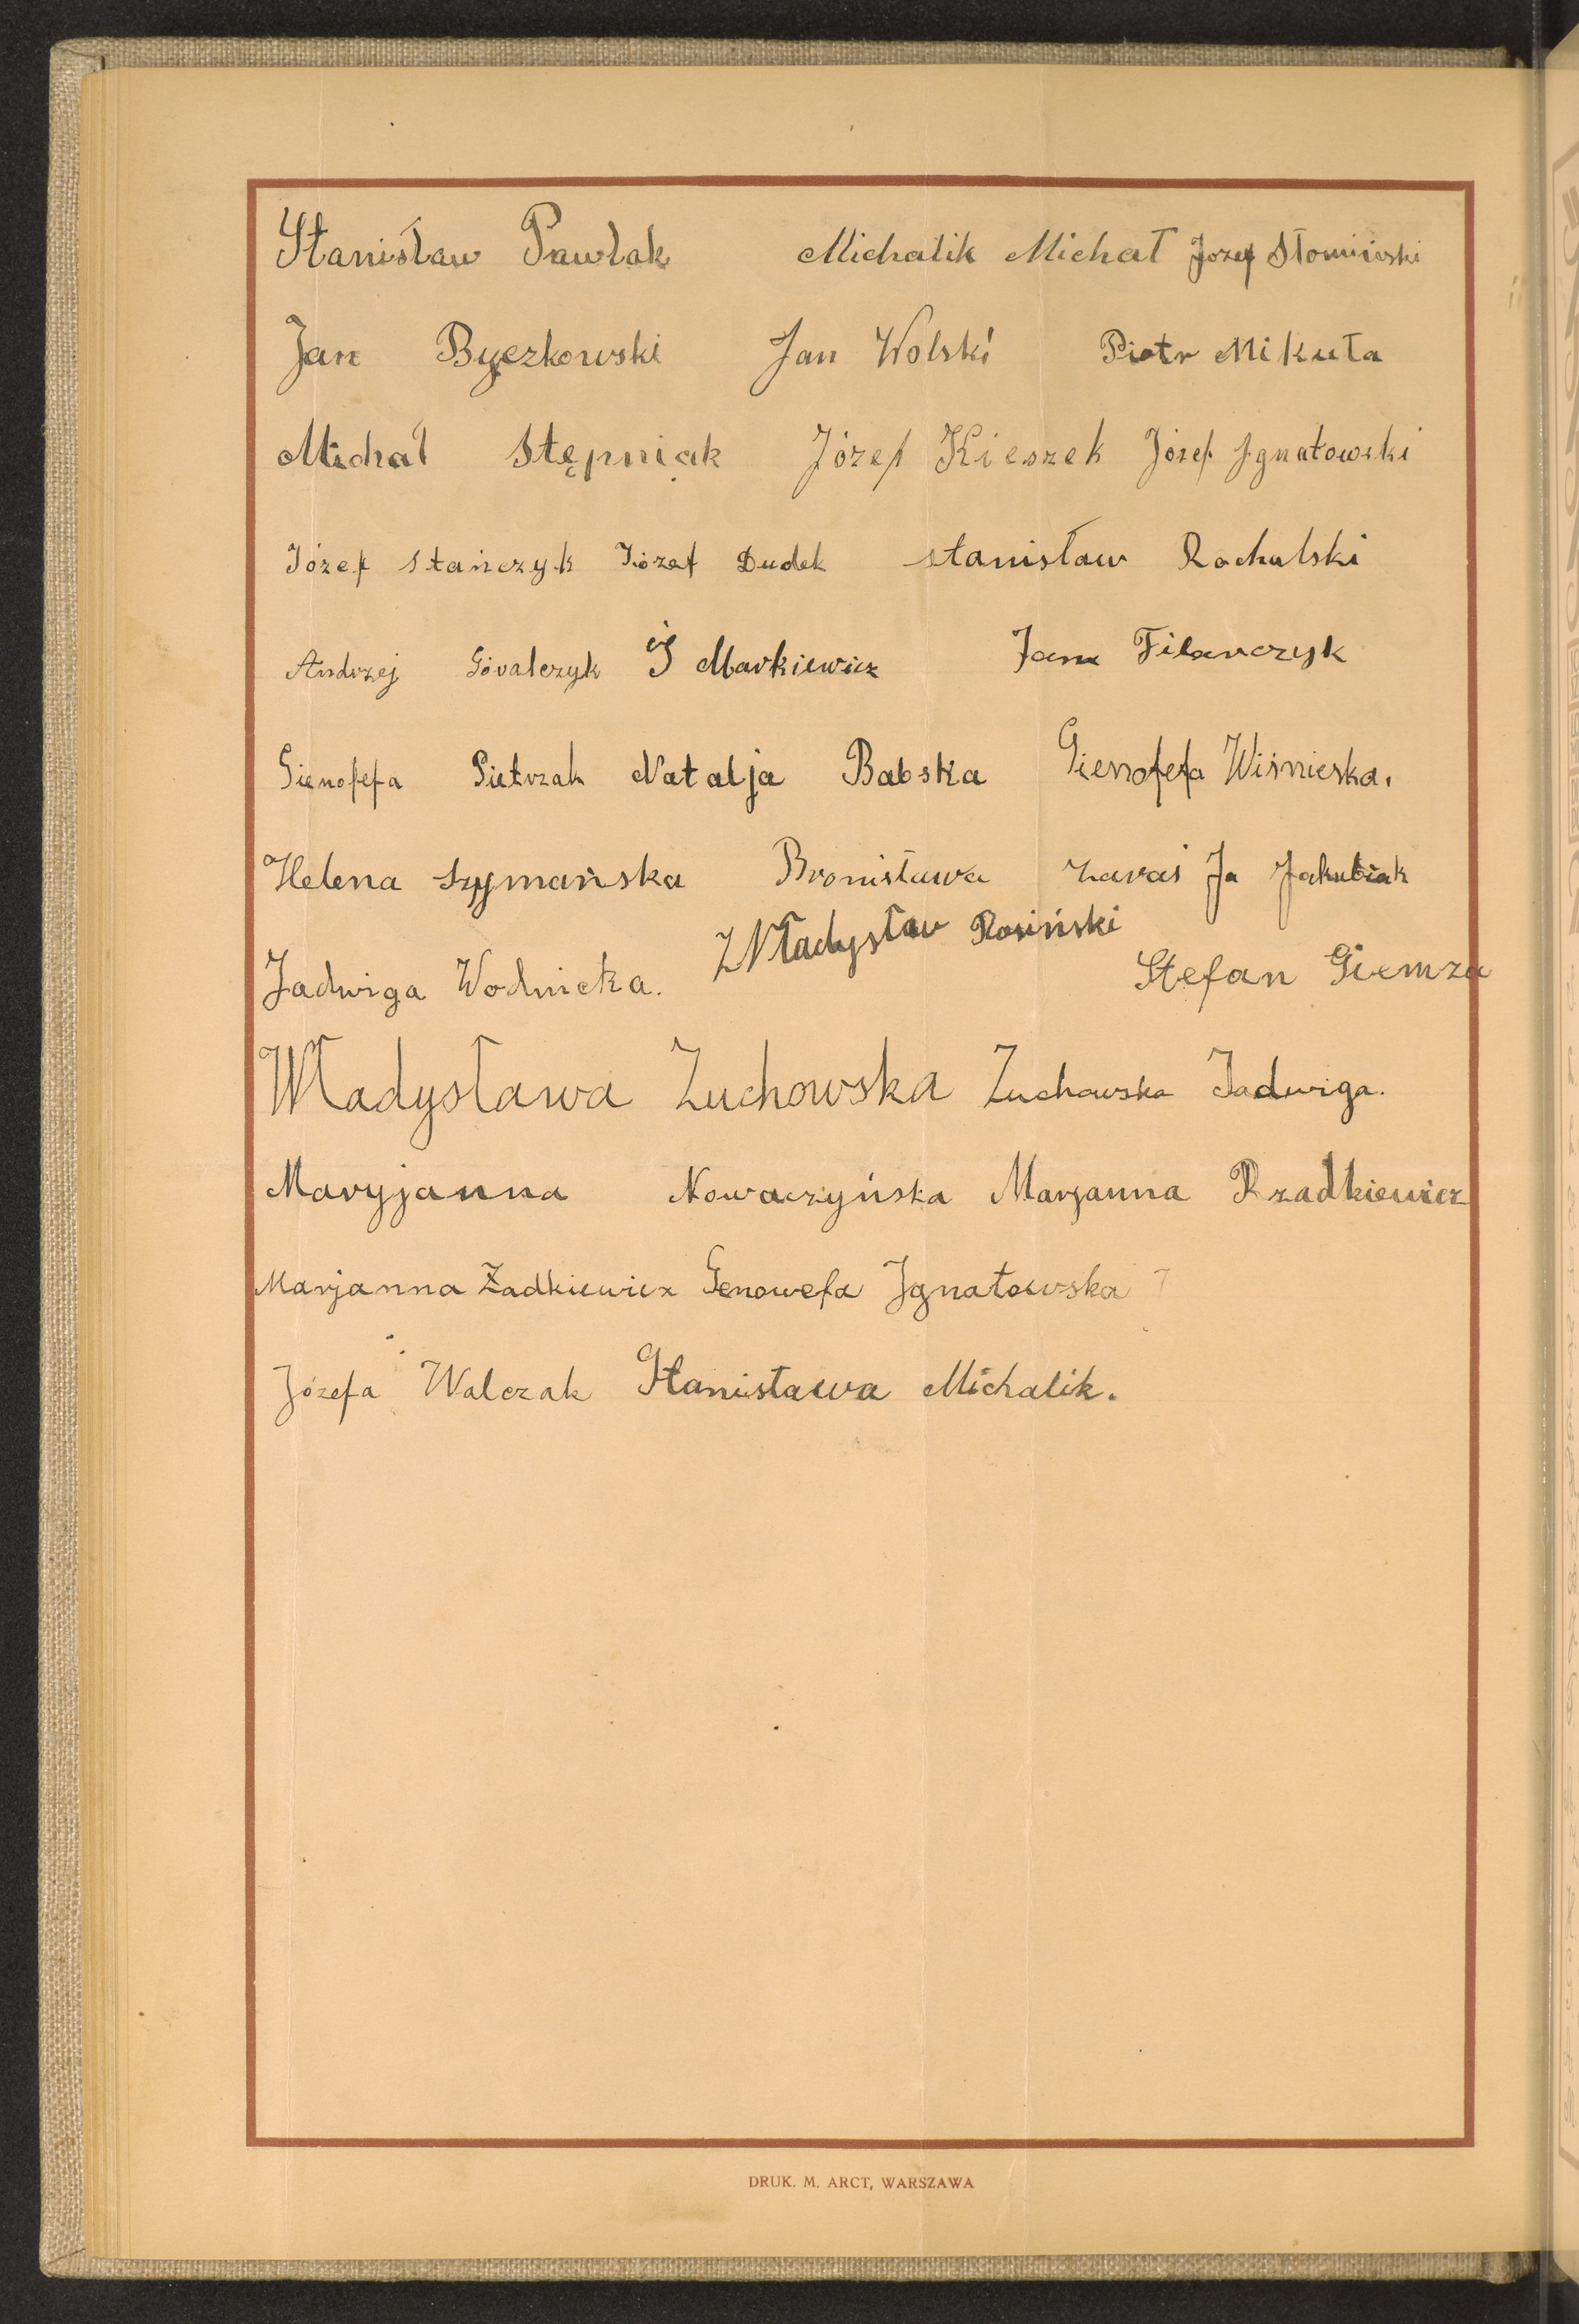 Stanisław Pawlak Michalik Michał Jozef Słomiński
Jan Byczkowski Jan Wolski Piotr Mikuła
Michał Stępniak Józef Kieszek Józef Ignatowski
Józef Stańczyk Józef Dudek stanisław Rochalski
Andrzej Góralczyk J Markiewicz Jan Filarczyk
Gienofefa Pietrzak Natalja Babska Gienofefa Wiśnieska.
Helena Szymańska Bronisława Zaraś Ja Jakubiak
Jadwiga Wodnicka. Władysław Rosiński Stefan Giemza
Władysława Zuchowska Zuchowska Jadwiga.
Maryjanna Nowaczyńska Marjanna Rzadkiewicz
Marjanna Żadkiewicz Genowefa Ignatowska
Józefa Walczak Stanisława Michalik.
DRUK. M. ARCT, WARSZAWA